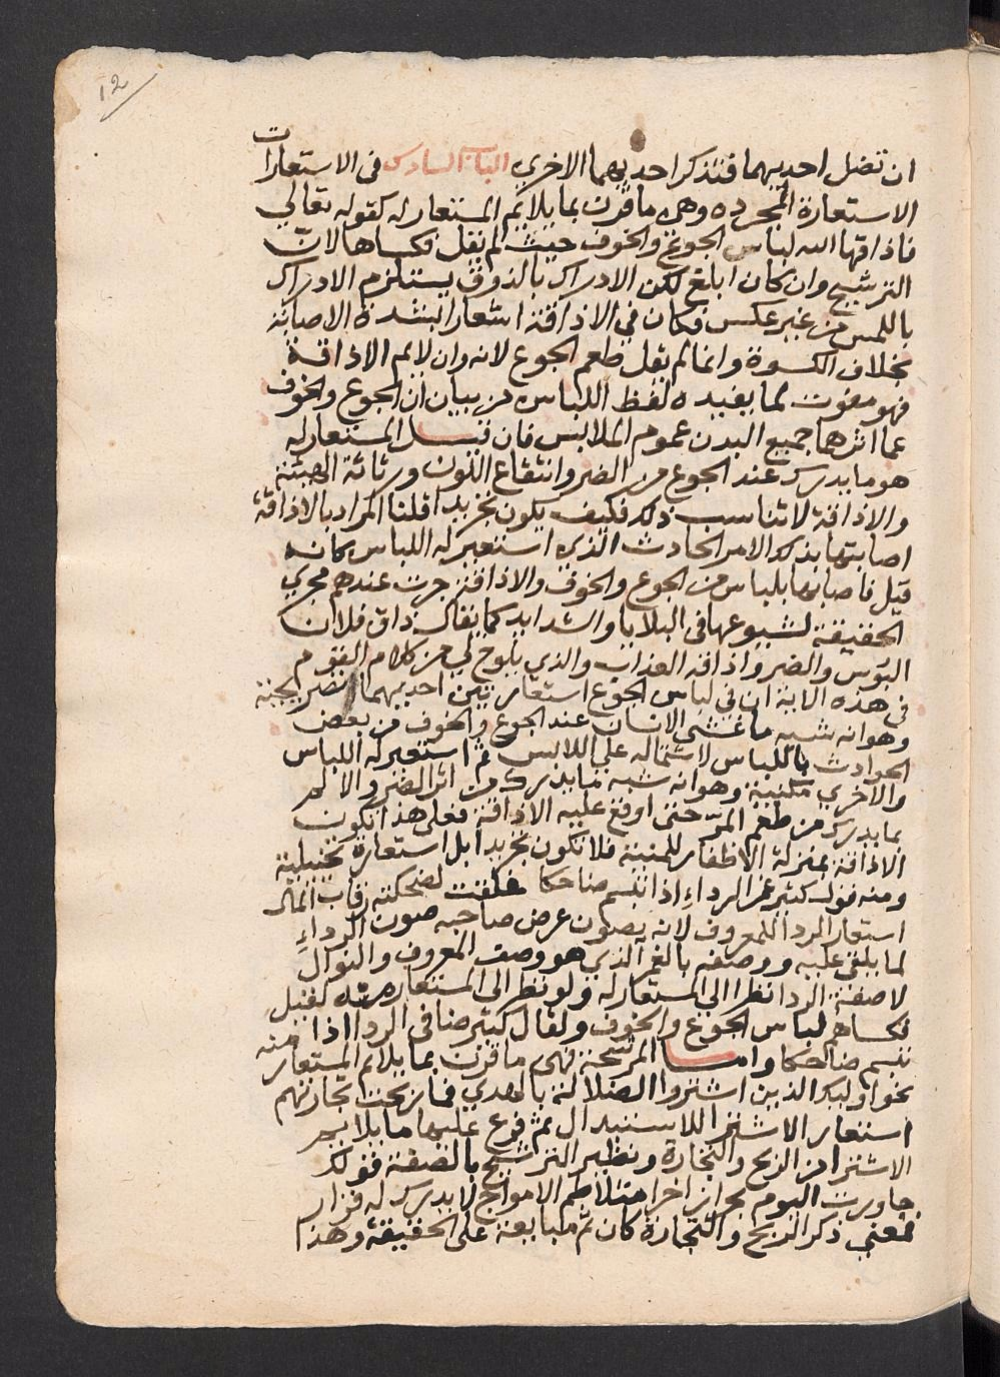 12
ان تضل احديهما فتذكر احديهما الاخرى الباب السادس في الاستعارات
الاستعارة المجرده وهى ما قرن بما يلايم المستعار له كقوله تعالي
فاذاقها الله لباس الجوع والخوف حيث لم نقل فكساها لان
الترشيح وان كان ابلغ لكن الادراك بالذوق يستلزم الادراك
باللمس من غير عكس فكان في الاذاقة اشعارا بشدة الاصابة
بخلاف الكسوة وانما لم يقل طعم الجوع لانه وان لايم الاذاقة
فهو مفوت لما يفيده لفظ اللباس من بيان ان الجوع والخوف
عما اثرهما جميع البدن عموم الملابس فان قيل المستعار له
هو ما يدرك عند الجوع من الضر وانتقاع اللون ورثاثة الهيئة
والاذاقة لا تناسب ذلك فكيف يكون تجريدا قلنا المراد بالاذاقة
اصابتها بذلك الامر الحادث الذي استعير له اللباس كانه
قيل فاصابها بلباس من الجوع والخوف والاذاقة جرت عندهم مجري
الحقيقة لشيوعها في البلايا والشدايد كما يقال ذاق فلان
البؤس والضر واذاقه العذاب والذي يلوح لي من كلام القوم
في هذه الاية ان في لباس الجوع استعارتين احديهما تصريحية
وهو انه شبه ما غشى الانسان عند الجوع والخوف من بعض
الحوادث باللباس لاشتماله علي اللابس ثم استعير له اللباس
والاخري مكنية وهو انه شبه ما يدرك من اثر الضر والالم
بما يدرك من طعم المر حتى اوقع عليه الاذاقة فعلى هذا تكون
الاذاقة بمنزلة الاظفار للمنية فلا تكون تجريدا بل استعارة تخييلية
ومنه قول كثير غمر الرداء اذا تبسم ضاحكا غلقت لضحكته رقاب المال
استعار الردا للمعروف لانه يصون عرض صاحبه صون الرداء
لما يلقى عليه ووصفه بالغمر الذي هو وصف المعروف والنوال
لا صفة الردا نظرا الي المستعار له ولو نظر الى المستعار منه لقيل
فكساهم لباس الجوع والخوف ولقال كثير ضافى الردا اذا
تبسم ضاحكا واما المرشحة فهى ما قرن بما يلايم المستعار منه
نحو اوليك الذين اشتروا الضلالة بالهدي فما ربحت تجارتهم
استعار الاشترا للاستبدال ثم فرع عليها ما يلايم
الاشترا من الربح والتجارة ونظير الترشيح بالصفة قولك
جاورت اليوم بحرا زاخرا متلاطم الامواج لا يدرك له قرار
فمعني ذكر الربح والتجارة كان ثم مبايعة على الحقيقة وهذا